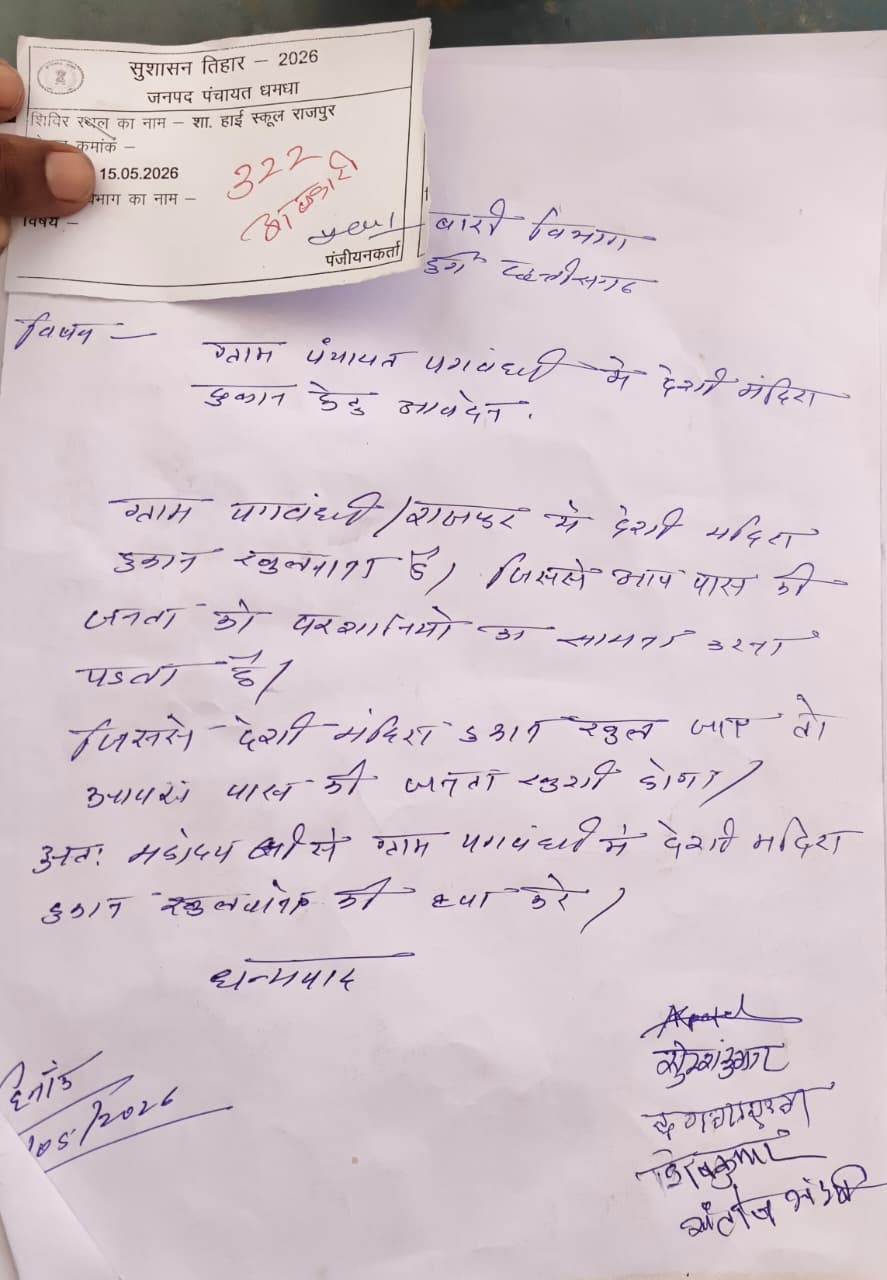 सुशासन तिहार – 2026
जनपद पंचायत धमधा
शिविर स्थल का नाम – शा. हाई स्कूल राजपुर
कमांक –
15.05.2026
भाग का नाम –
विषय –
322
आबकारी
पंजीयनकर्ता
बारी विभाग
दुर्ग छत्तीसगढ
विषय –
ग्राम पंचायत पगबंधी मे देशी मंदिरा
दुकान हेतु आवेदन.
ग्राम पगबंधी/राजपुर मे देशी मदिरा
दुकान खुलवाना है। जिससे आप पास की
जनता को परशानियो का सामना करना
पडता है।
जिससे देशी मंदिरा दुकान खुल जाए तो
आपस पास की जनता खुशी होगा।
अतः महोदय जी से ग्राम पगबंधी मे देशी मदिरा
दुकान खुलवाने की कृपा करे।
धन्यवाद
दिनाँक
/05/2026
शिवकुमार
संतोष